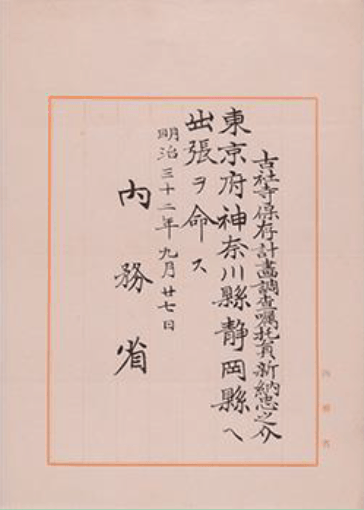 古社寺保存計畫調査嘱托員新納忠之介
東京府神奈川縣靜岡縣へ
出張ヲ命ス
明治三十二年九月廿七日
內務省
內務省